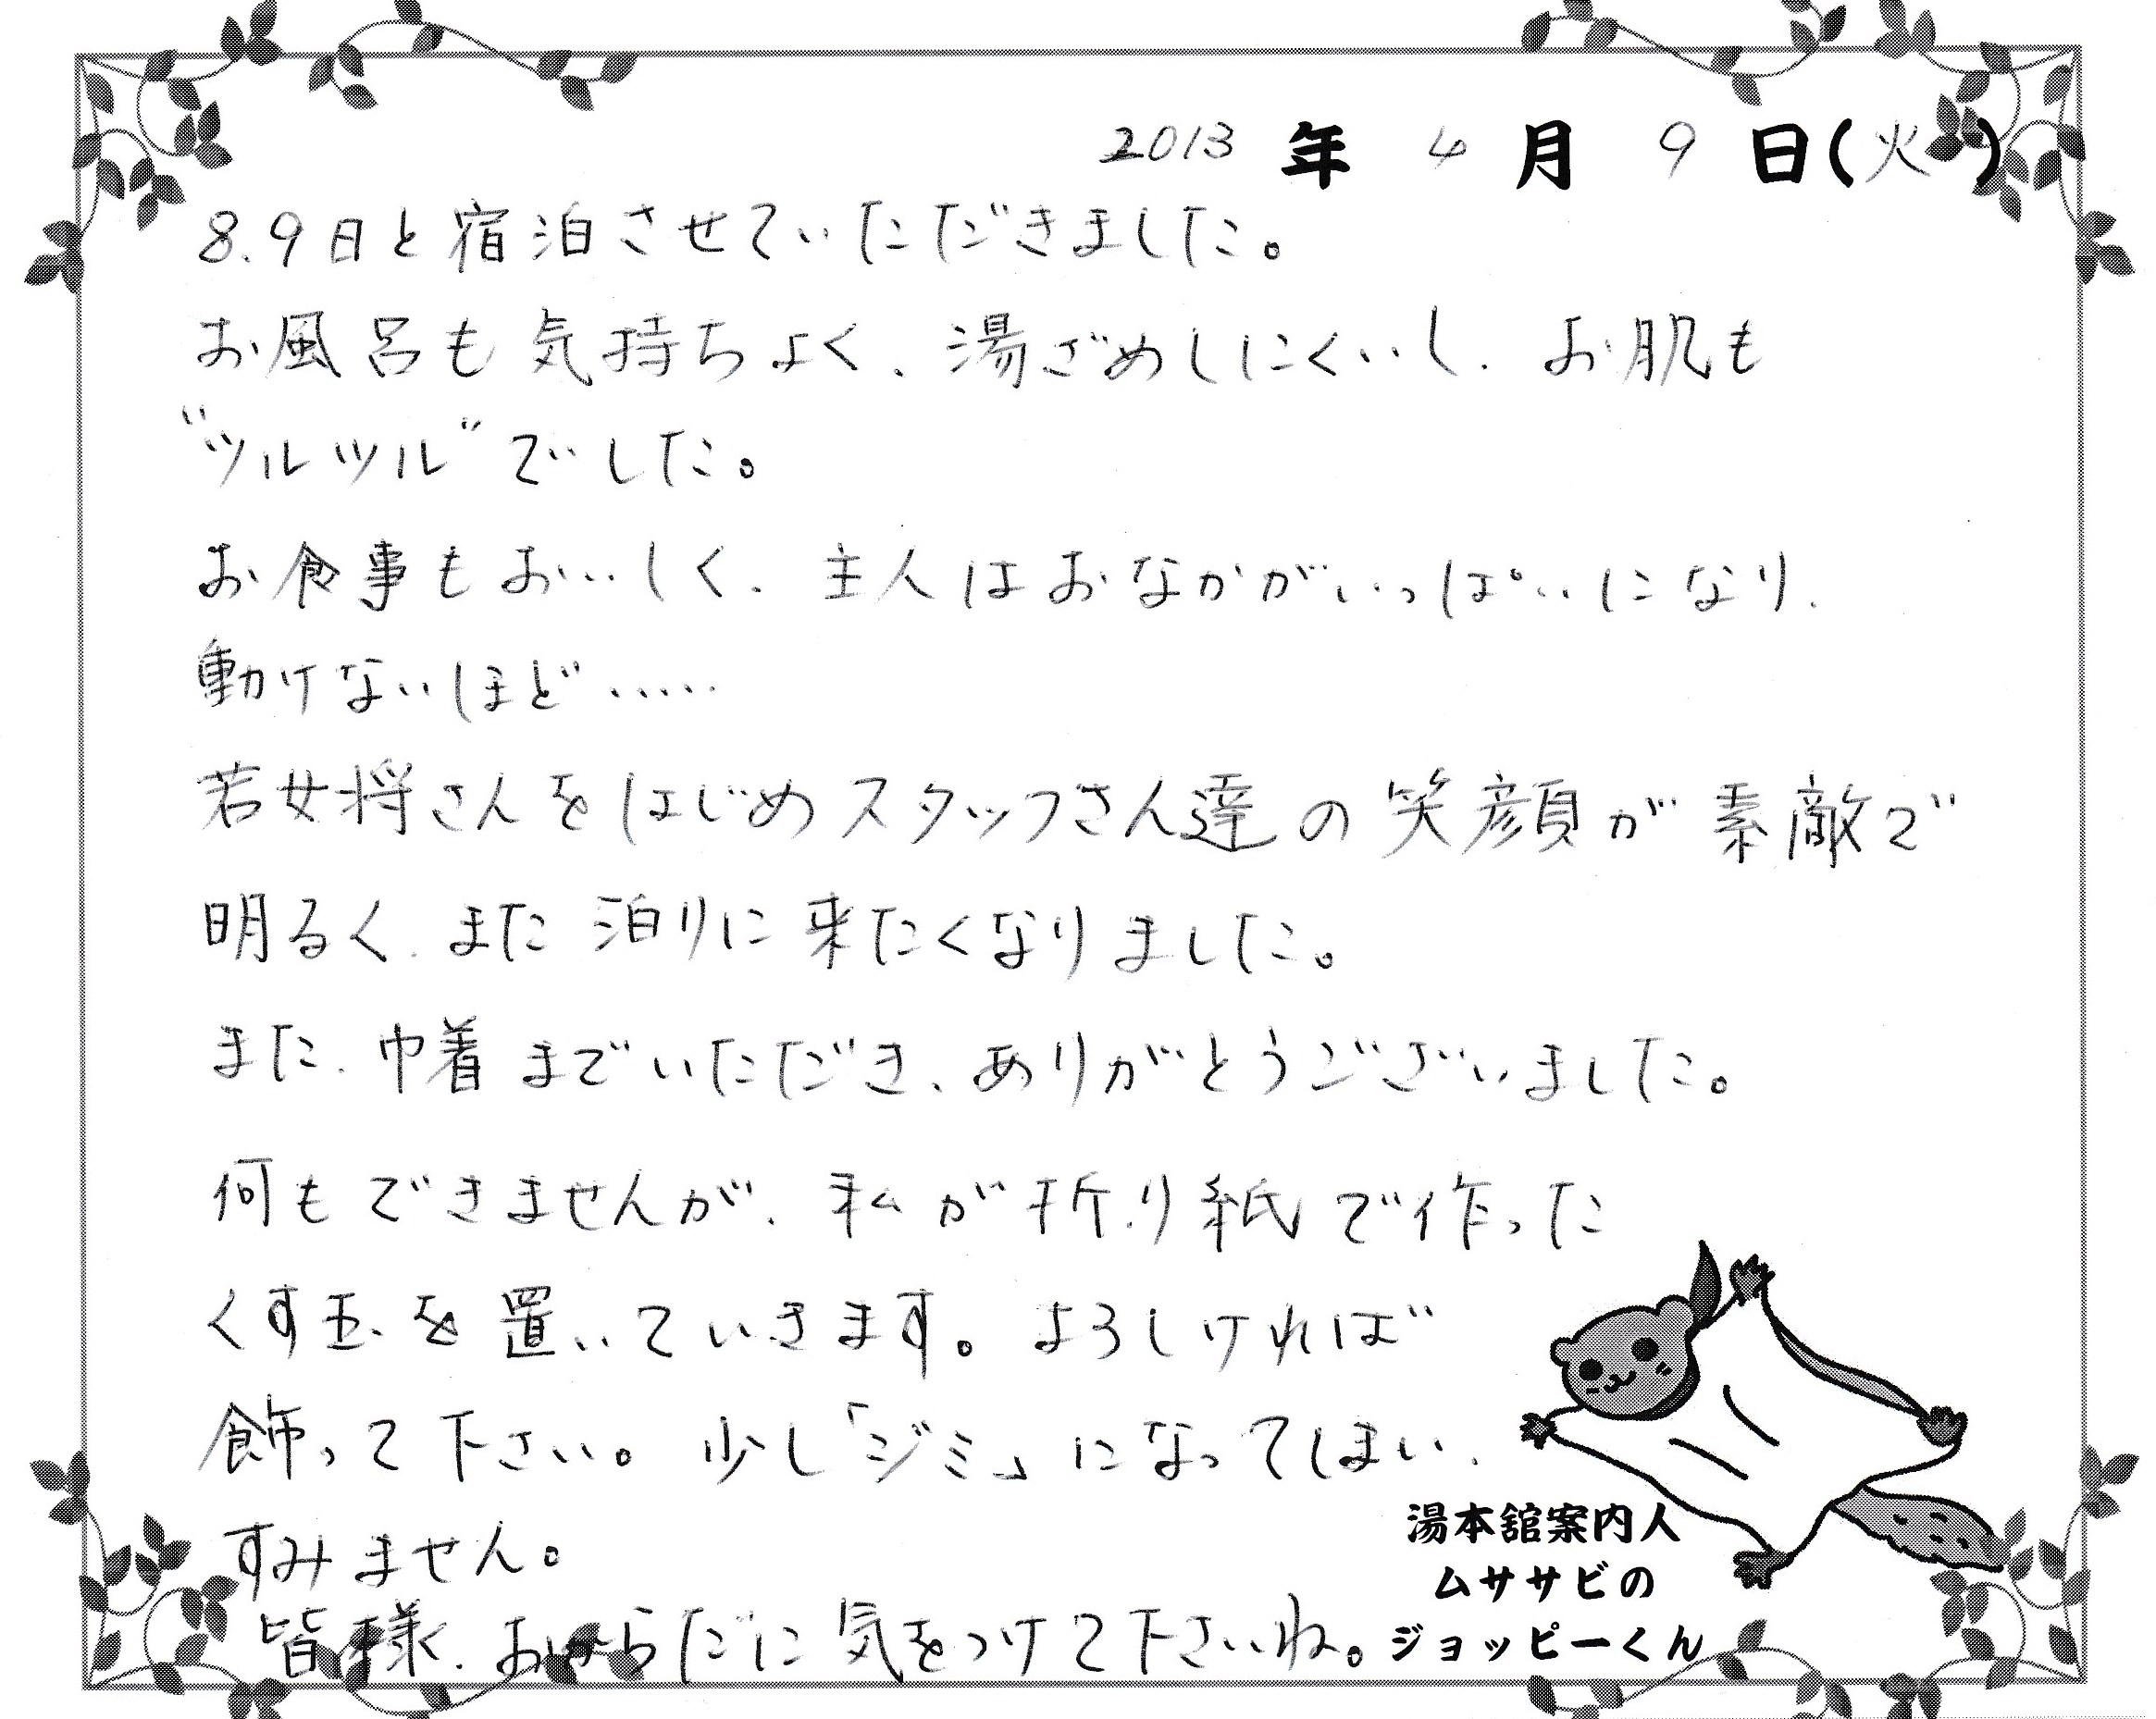 2013年4月9日(火)
8.9日と宿泊させていただきました。
お風呂も気持ちよく、湯ざめしにくいし、お肌も
"ツルツル"でした。
お食事もおいしく、主人はおなかがいっぱいになり、
動けないほど……
若女将さんをはじめスタッフさん達の笑顔が素敵で
明るく、また泊りに来たくなりました。
また、巾着までいただき、ありがとうございました。
何もできませんが、私が折り紙で作った
くす玉を置いていきます。よろしければ
飾って下さい。少し「ジミ」になってしまい、
すみません。
皆様、おからだに気をつけて下さいね。
湯本舘案内人
ムササビの
ジョッピーくん